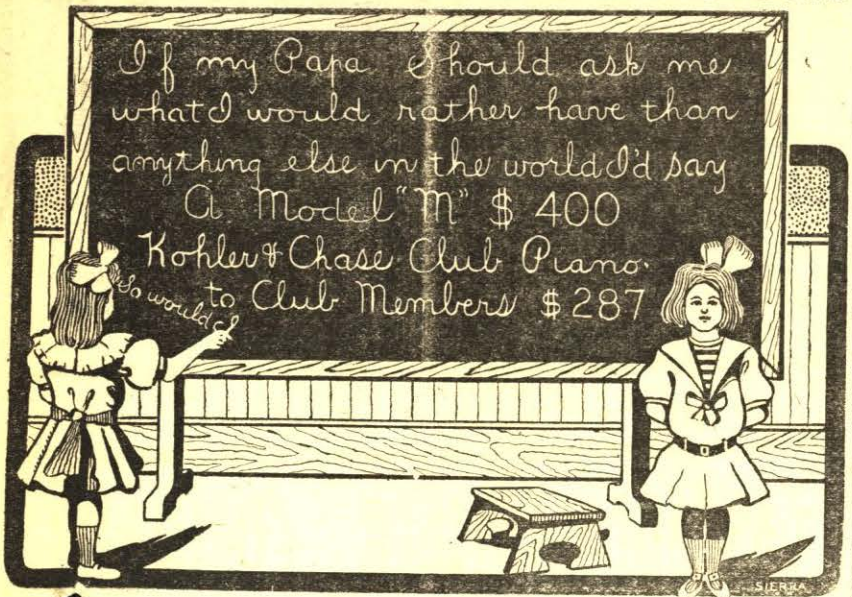 If my Papa should ask me
what I would rather have than
anything else in the world I'd say
A Model "M" $ 400
Kohler & Chase Club Piano.
to Club Members $ 287
So would I
SIERRA